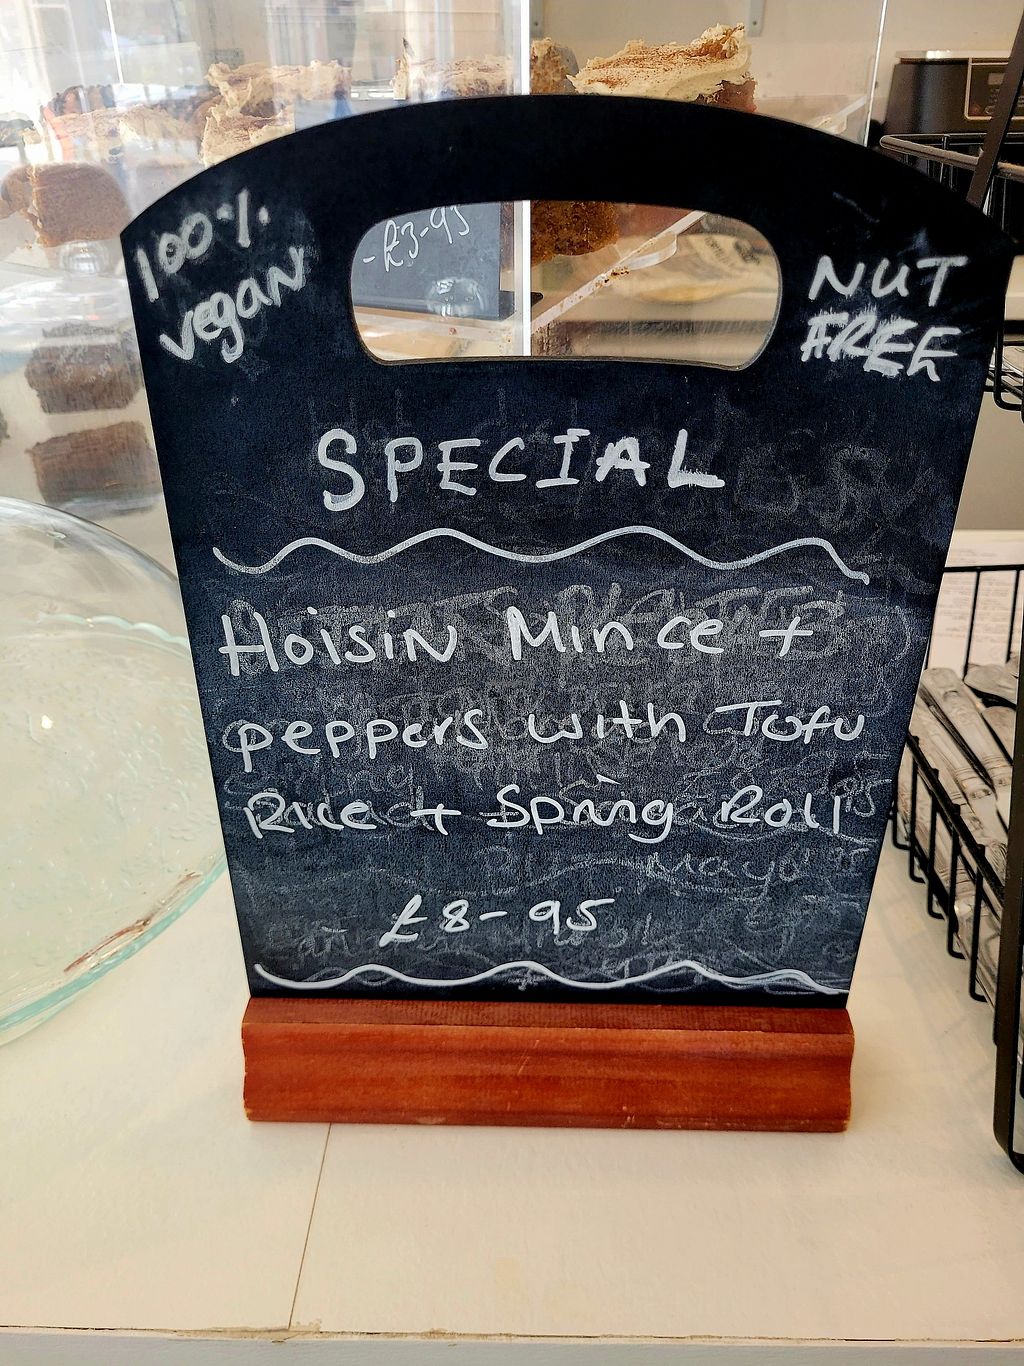 100% vegan
NUT FREE
-£3-95
SPECIAL
Hoisin Mince +
peppers with Tofu
Rice + Spring Roll
£8-95